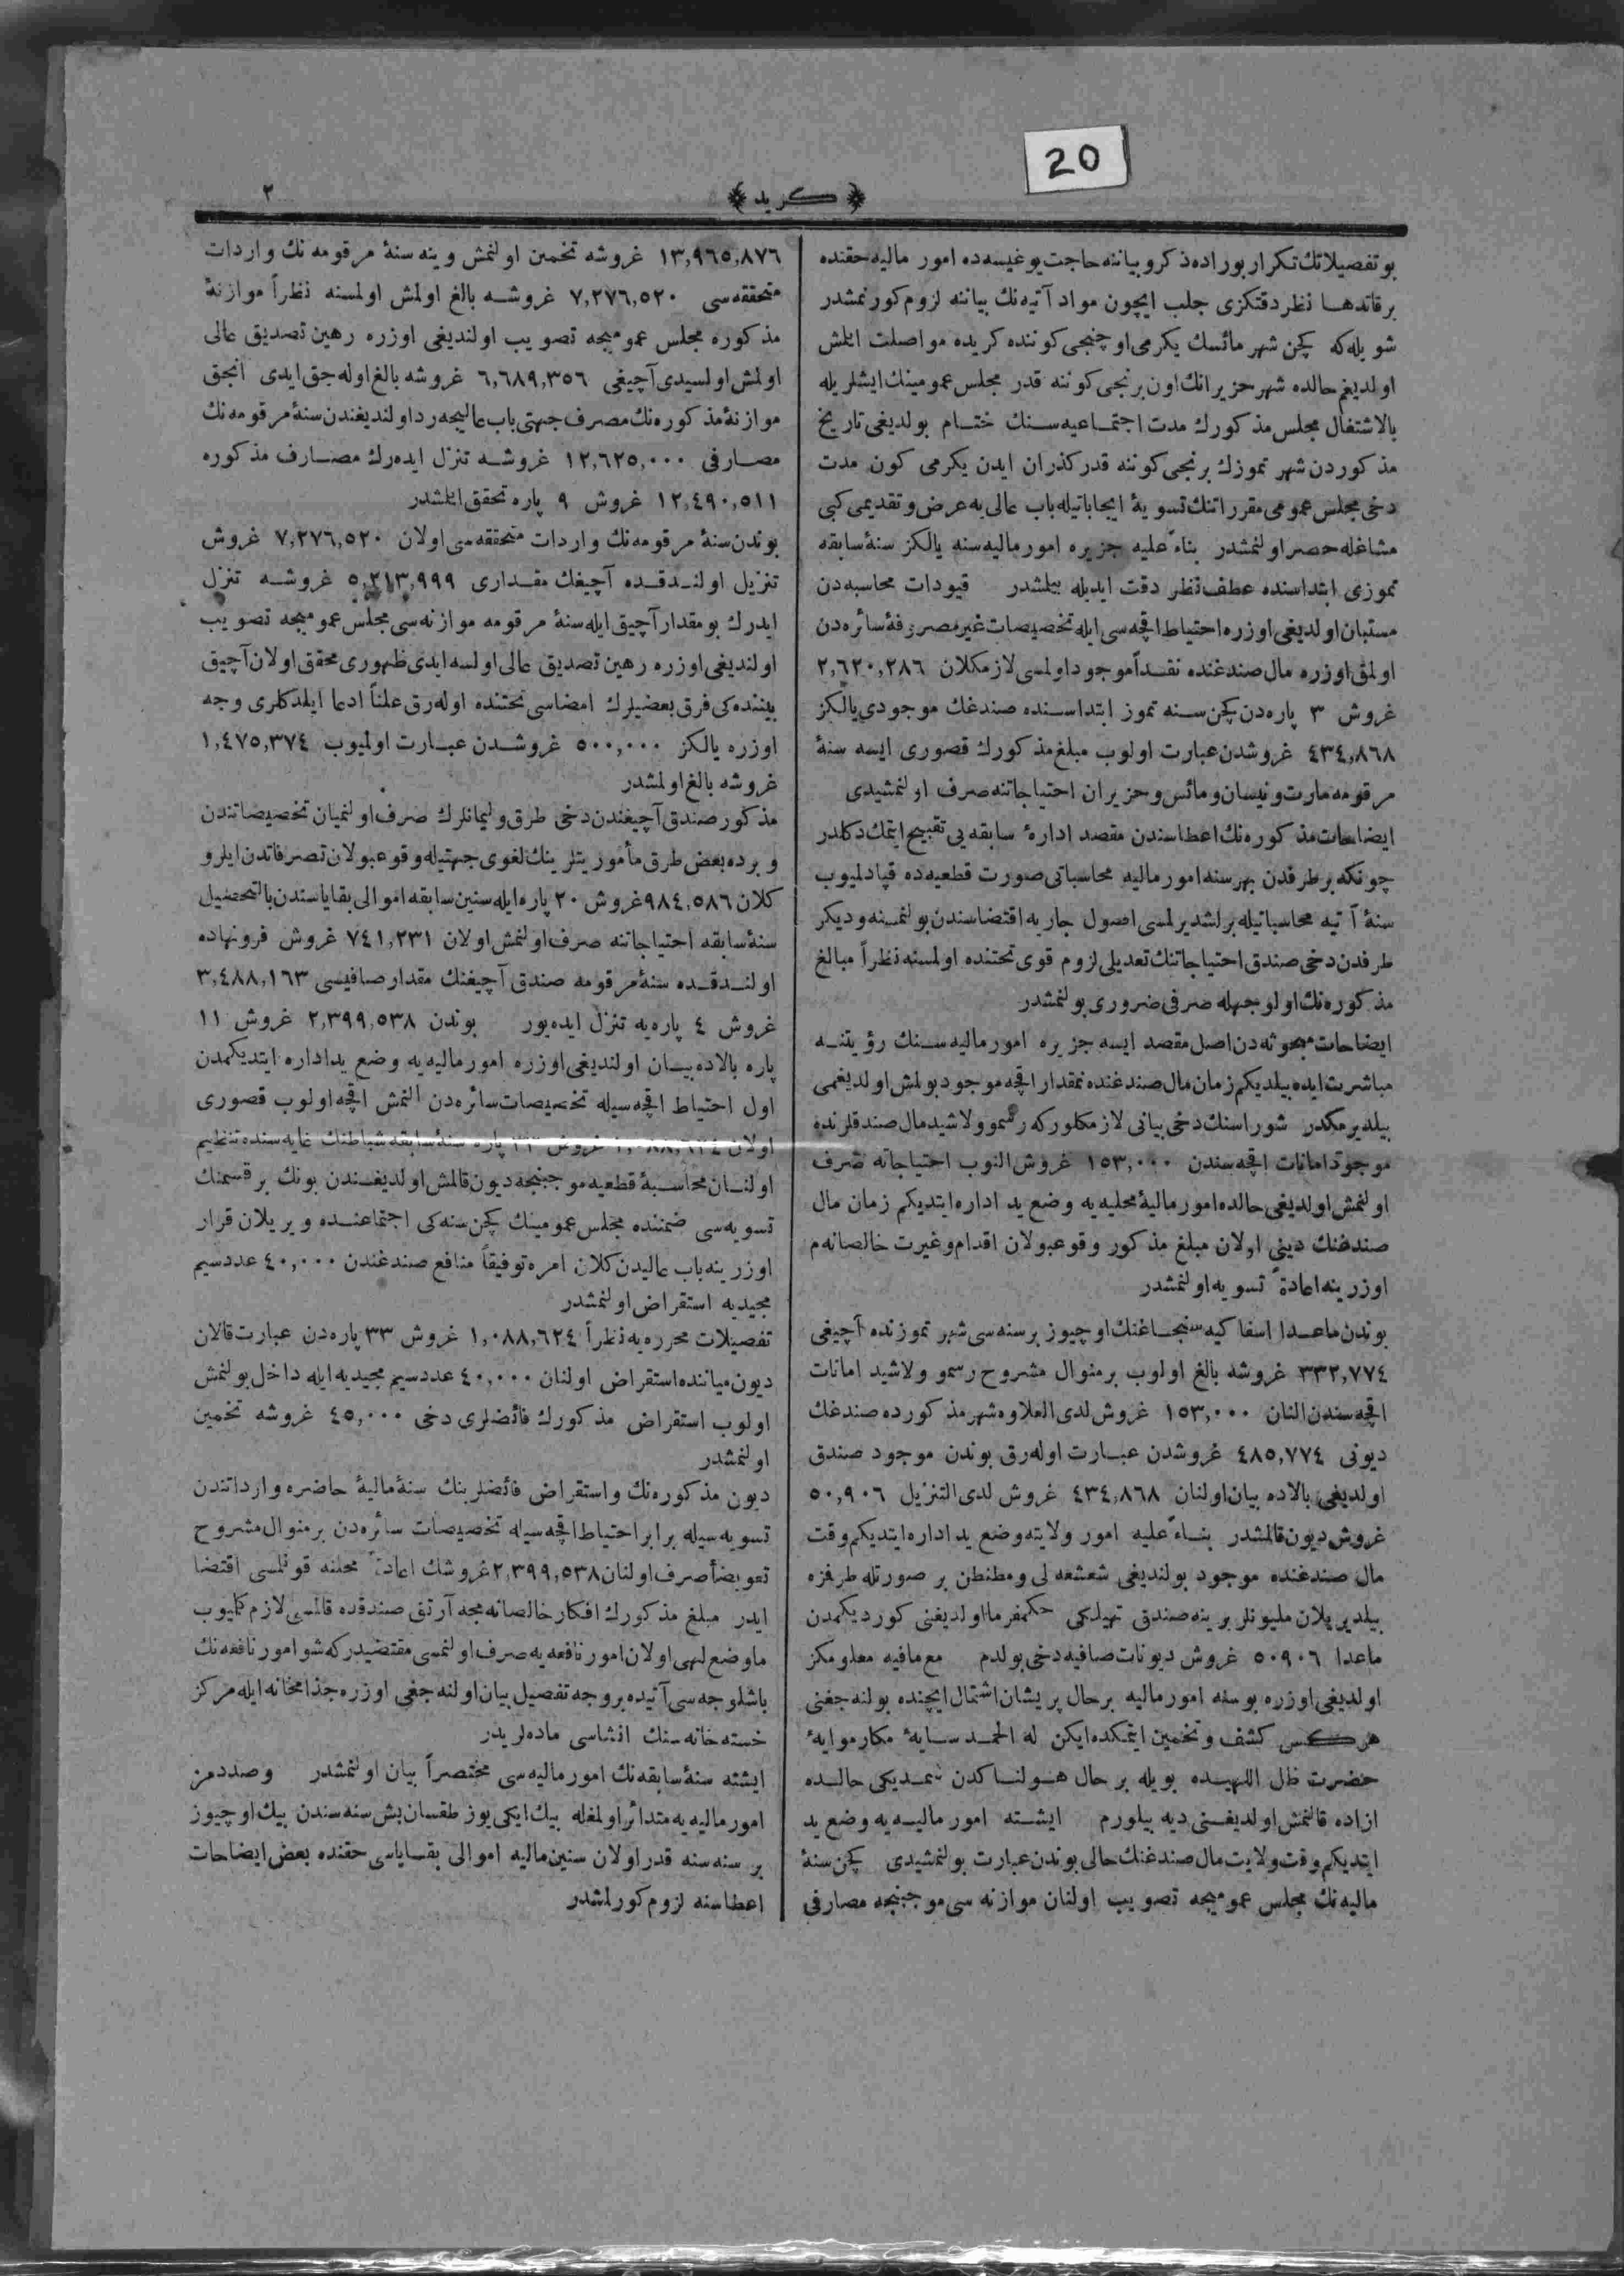 20
﴿ كريد ﴾
٢
بو تفصیلاتك تكرار بوراده ذكر و بیاننه حاجت یوغیسه‌ده امور مالیه حقنده
برقاتدها نظر دقتكزی جلب ایچون مواد آتیه‌نك بیاننه لزوم كورنمشدر
شویله‌كه كچن شهر مائسك یكرمی اوچنجی كوننده كریده مواصلت ایلمش
اولدیغم حالده شهر حزیرانك اون برنجی كوننه قدر مجلس عمومینك ایشلریله
بالاشتغال مجلس مذكورك مدت اجتماعیه‌سنك ختام بولدیغی تاریخ
مذكوردن شهر تموزك برنجی كوننه قدر كذران ایدن یكرمی كون مدت
دخی مجلس عمومی مقرراتنك تسویهٔ ایجاباتیله باب عالی‌یه عرض و تقدیمی كبی
مشاغله حصر اولنمشدر بناءً علیه جزیره امور مالیه‌سنه یالكز سنهٔ سابقه
تموزی ابتداسنده عطف نظر دقت ایدیله بیلمشدر قیودات محاسبه‌دن
مستبان اولدیغی اوزره احتیاط اقچه‌سی ایله تخصیصات غیر مصروفهٔ سائره‌دن
اولمق اوزره مال صندغنده نقداً موجود اولمسی لازمكلان ٢,٦٢٠,٢٨٦
غروش ٣ پاره‌دن كچن سنه تموز ابتداسنده صندغك موجودی یالكز
٤٣٤,٨٦٨ غروشدن عبارت اولوب مبلغ مذكورك قصوری ایسه سنهٔ
مرقومه مارت و نیسان و مائس و حزیران احتیاجاتنه صرف اولنمشیدی
ایضاحات مذكوره‌نك اعطاسندن مقصد ادارهٔ سابقه‌یی تقبیح ایتمك دكلدر
چونكه برطرفدن بهر سنه امور مالیه محاسباتی صورت قطعیه‌ده قپادلمیوب
سنهٔ آتیه محاسباتیله برلشدیرلمسی اصول جاریه اقتضاسندن بولنمسنه و دیكر
طرفدن دخی صندق احتیاجاتنك تعدیلی لزوم قوی تحتنده اولمسنه نظراً مبالغ
مذكوره‌نك اولوجهله صرفی ضروری بولنمشدر
ایضاحات مبحوثه‌دن اصل مقصد ایسه جزیره امور مالیه‌سنك رؤیتنه
مباشرت ایده بیلدیكم زمان مال صندغنده نمقدار اقچه موجود بولمش اولدیغمی
بیلدیرمكدر شوراسنك دخی بیانی لازمكلوركه رسمو ولاشید مال صندقلرنده
موجود امانات اقچه‌سندن ١٥٣,٠٠٠ غروش النوب احتیاجاته صرف
اولنمش اولدیغی حالده امور مالیهٔ محلیه‌یه وضع ید اداره ایتدیكم زمان مال
صندغنك دینی اولان مبلغ مذكور وقوعبولان اقدام و غیرت خالصانه‌م
اوزرینه اعادةً تسویه اولنمشدر
بوندن ماعدا اسفاكیه سنجاغنك اوچیوز برسنه‌سی شهر تموزنده آچیغی
٣٣٢,٧٧٤ غروشه بالغ اولوب برمنوال مشروح رسمو ولاشید امانات
اقچه‌سندن النان ١٥٣,٠٠٠ غروش لدی العلاوه شهر مذكورده صندغك
دیونی ٤٨٥,٧٧٤ غروشدن عبارت اوله‌رق بوندن موجود صندق
اولدیغی بالاده بیان اولنان ٤٣٤,٨٦٨ غروش لدی التنزیل ٥٠,٩٠٦
غروش دیون قالمشدر بناءً علیه امور ولایته وضع ید اداره ایتدیكم وقت
مال صندغنده موجود بولندیغی شعشعه‌لی و مطنطن بر صورتله طرفزه
بیلدیریلان ملیونلر برینه صندق تهیلكی حكمفرما اولدیغنی كوردیكمدن
ماعدا ٥٠٩٠٦ غروش دیونات صافیه دخی بولدم مع مافیه معلومكز
اولدیغی اوزره بو سنه امور مالیه برحال پریشان اشتمال ایچنده بولنه‌جغنی
هركس كشف و تخمین ایتمكده ایكن له الحمد سایهٔ مكارموایهٔ
حضرت ظل اللهیده بویله بر حال هولناكدن شمدیكی حالده
ازاده قالنمش اولدیغنی دیه بیلورم ایشته امور مالیه‌یه وضع ید
ایتدیكم وقت ولایت مال صندغنك حالی بوندن عبارت بولنمشیدی كچن سنهٔ
مالیه‌نك مجلس عمومیجه تصویب اولنان موازنه‌سی موجبنجه مصارفی
١٣,٩٦٥,٨٧٦ غروشه تخمین اولنمش وینه سنهٔ مرقومه‌نك واردات
متحققه‌سی ٧,٢٧٦,٥٢٠ غروشه بالغ اولمش اولمسنه نظراً موازنهٔ
مذكوره مجلس عمومیجه تصویب اولندیغی اوزره رهین تصدیق عالی
اولمش اولسیدی آچیغی ٦,٦٨٩,٣٥٦ غروشه بالغ اوله‌جق ایدی انجق
موازنهٔ مذكوره‌نك مصرف جهتی باب عالیجه رد اولندیغندن سنهٔ مرقومه‌نك
مصارفی ١٢,٦٢٥,٠٠٠ غروشه تنزل ایده‌رك مصارف مذكوره
١٢,٤٩٠,٥١١ غروش ٩ پاره تحقق ایلمشدر
بوندن سنهٔ مرقومه‌نك واردات متحققه‌سی اولان ٧,٢٧٦,٥٢٠ غروش
تنزیل اولندقده آچیغك مقداری ٥,٢١٣,٩٩٩ غروشه تنزل
ایدرك بو مقدار آچیق ایله سنهٔ مرقومه موازنه‌سی مجلس عمومیجه تصویب
اولندیغی اوزره رهین تصدیق عالی اولسه ایدی ظهوری محقق اولان آچیق
بیننده‌كی فرق بعضیلرك امضاسی تحتنده اوله‌رق علناً ادعا ایلدكلری وجه
اوزره یالكز ٥٠٠,٠٠٠ غروشدن عبارت اولمیوب ١,٤٧٥,٣٧٤
غروشه بالغ اولمشدر
مذكور صندق آچیغندن دخی طرق و لیمانلرك صرف اولنمیان تخصیصاتندن
و برده بعض طرق مأموریتلرینك لغوی جهتیله وقوعبولان تصرفاتدن ایلرو
كلان ٩٨٤,٥٨٦ غروش ٢٠ پاره ایله سنین سابقه اموالی بقایاسندن بالتحصیل
سنهٔ سابقه احتیاجاتنه صرف اولنمش اولان ٧٤١,٢٣١ غروش فرونهاده
اولندقده سنهٔ مرقومه صندق آچیغنك مقدار صافیسی ٣,٤٨٨,١٦٣
غروش ٤ پاره‌یه تنزل ایدەیور بوندن ٢,٣٩٩,٥٣٨ غروش ١١
پاره بالاده بیان اولندیغی اوزره امور مالیه‌یه وضع ید اداره ایتدیكمدن
اول احتیاط اقچه‌سیله تخصیصات سائره‌دن النمش اقچه اولوب قصوری
اولان ١,٠٨٨,٦٢٤ غروش ٣٣ پاره سنهٔ سابقه شباطنك غایه‌سنده تنظیم
اولنان محاسبهٔ قطعیه موجبنجه دیون قالمش اولدیغندن بونك بر قسمنك
تسویه‌سی ضمننده مجلس عمومینك كچن سنه‌كی اجتماعنده ویریلان قرار
اوزرینه باب عالیدن كلان امره توفیقاً منافع صندغندن ٤٠,٠٠٠ عدد سیم
مجیدیه استقراض اولنمشدر
تفصیلات محرره‌یه نظراً ١,٠٨٨,٦٢٤ غروش ٣٣ پاره‌دن عبارت قالان
دیون میاننده استقراض اولنان ٤٠,٠٠٠ عدد سیم مجیدیه ایله داخل بولنمش
اولوب استقراض مذكورك فائضلری دخی ٤٥,٠٠٠ غروشه تخمین
اولنمشدر
دیون مذكوره‌نك و استقراض فائضلرینك سنهٔ مالیهٔ حاضره وارداتندن
تسویه‌سیله برابر احتیاط اقچه‌سیله تخصیصات سائره‌دن برمنوال مشروح
تعویضاً صرف اولنان ٢,٣٩٩,٥٣٨ غروشك اعادةً محلنه قونلمسی اقتضا
ایدر مبلغ مذكورك افكار خالصانه‌مجه آرتق صندقده قالمسی لازم كلمیوب
ماوضع لهی اولان امور نافعه‌یه صرف اولنمسی مقتضیدركه شو امور نافعه‌نك
باشلوجه‌سی آتیده بروجه تفصیل بیان اولنه‌جغی اوزره جذامخانه ایله مركز
خسته‌خانه‌سنك انشاسی ماده‌لریدر
ایشته سنهٔ سابقه‌نك امور مالیه‌سی مختصراً بیان اولنمشدر وصددمز
امور مالیه‌یه متدائر اولمغله بیك ایكی یوز طقسان بش سنه‌سندن بیك اوچیوز
بر سنه‌سنه قدر اولان سنین مالیه اموالی بقایاسی حقنده بعض ایضاحات
اعطاسنه لزوم كورلمشدر